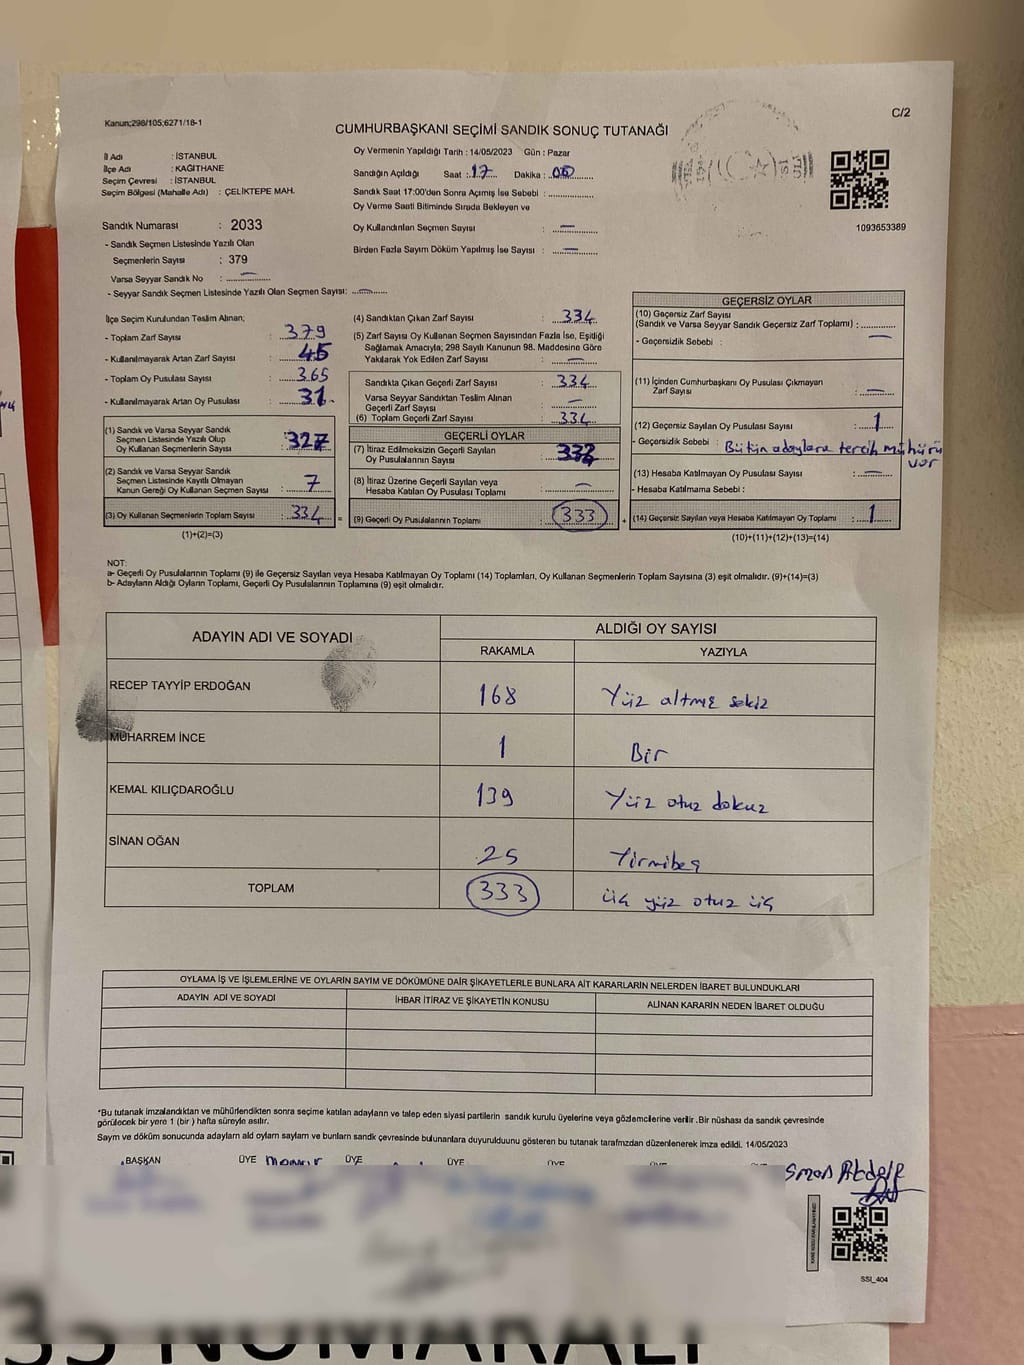 Kanun;298/105;6271/18-1
C/2
CUMHURBAŞKANI SEÇİMİ SANDIK SONUÇ TUTANAĞI
İl Adı : İSTANBUL
İlçe Adı : KAĞITHANE
Seçim Çevresi : İSTANBUL
Seçim Bölgesi (Mahalle Adı) : ÇELİKTEPE MAH.
Oy Vermenin Yapıldığı Tarih : 14/05/2023 Gün : Pazar
Sandığın Açıldığı Saat : 17 Dakika : 00
Sandık Saat 17:00'den Sonra Açımış İse Sebebi :
Oy Verme Saati Bitiminde Sırada Bekleyen ve
Oy Kullandırılan Seçmen Sayısı : —
Birden Fazla Sayım Döküm Yapılmış İse Sayısı : —
1093653389
Sandık Numarası : 2033
- Sandık Seçmen Listesinde Yazılı Olan
Seçmenlerin Sayısı : 379
Varsa Seyyar Sandık No : —
- Seyyar Sandık Seçmen Listesinde Yazılı Olan Seçmen Sayısı: —
İlçe Seçim Kurulundan Teslim Alınan;
- Toplam Zarf Sayısı : 379
- Kullanılmayarak Artan Zarf Sayısı : 45
- Toplam Oy Pusulası Sayısı : 365
- Kullanılmayarak Artan Oy Pusulası : 31
(1) Sandık ve Varsa Seyyar Sandık
Seçmen Listesinde Yazılı Olup
Oy Kullanan Seçmenlerin Sayısı : 327
(2) Sandık ve Varsa Seyyar Sandık
Seçmen Listesinde Kayıtlı Olmayan
Kanun Gereği Oy Kullanan Seçmen Sayısı : 7
(3) Oy Kullanan Seçmenlerin Toplam Sayısı : 334 =
(1)+(2)=(3)
(4) Sandıktan Çıkan Zarf Sayısı : 334
(5) Zarf Sayısı Oy Kullanan Seçmen Sayısından Fazla İse, Eşitliği
Sağlamak Amacıyla; 298 Sayılı Kanunun 98. Maddesine Göre
Yakılarak Yok Edilen Zarf Sayısı : —
Sandıkta Çıkan Geçerli Zarf Sayısı : 334
Varsa Seyyar Sandıktan Teslim Alınan
Geçerli Zarf Sayısı : —
(6) Toplam Geçerli Zarf Sayısı : 334
GEÇERLİ OYLAR
(7) İtiraz Edilmeksizin Geçerli Sayılan
Oy Pusulalarının Sayısı :
(8) İtiraz Üzerine Geçerli Sayılan veya
Hesaba Katılan Oy Pusulası Toplamı : —
(9) Geçerli Oy Pusulalarının Toplamı : 333 +
GEÇERSİZ OYLAR
(10) Geçersiz Zarf Sayısı
(Sandık ve Varsa Seyyar Sandık Geçersiz Zarf Toplamı) :
- Geçersizlik Sebebi : —
(11) İçinden Cumhurbaşkanı Oy Pusulası Çıkmayan
Zarf Sayısı : —
(12) Geçersiz Sayılan Oy Pusulası Sayısı : 1
- Geçersizlik Sebebi : Bütün adaylara tercih mühürü
var
(13) Hesaba Katılmayan Oy Pusulası Sayısı : —
- Hesaba Katılmama Sebebi :
(14) Geçersiz Sayılan veya Hesaba Katılmayan Oy Toplamı : 1
(10)+(11)+(12)+(13)=(14)
NOT:
a- Geçerli Oy Pusulalarının Toplamı (9) ile Geçersiz Sayılan veya Hesaba Katılmayan Oy Toplamı (14) Toplamları, Oy Kullanan Seçmenlerin Toplam Sayısına (3) eşit olmalıdır. (9)+(14)=(3)
b- Adayların Aldığı Oyların Toplamı, Geçerli Oy Pusulalarının Toplamına (9) eşit olmalıdır.
ADAYIN ADI VE SOYADI
ALDIĞI OY SAYISI
RAKAMLA YAZIYLA
RECEP TAYYİP ERDOĞAN 168 Yüz altmış sekiz
MUHARREM İNCE 1 Bir
KEMAL KILIÇDAROĞLU 139 Yüz otuz dokuz
SİNAN OĞAN 25 Yirmibeş
TOPLAM 333 üç yüz otuz üç
OYLAMA İŞ VE İŞLEMLERİNE VE OYLARIN SAYIM VE DÖKÜMÜNE DAİR ŞİKAYETLERLE BUNLARA AİT KARARLARIN NELERDEN İBARET BULUNDUKLARI
ADAYIN ADI VE SOYADI İHBAR İTİRAZ VE ŞİKAYETİN KONUSU ALINAN KARARIN NEDEN İBARET OLDUĞU
*Bu tutanak imzalandıktan ve mühürlendikten sonra seçime katılan adayların ve talep eden siyasi partilerin sandık kurulu üyelerine veya gözlemcilerine verilir. Bir nüshası da sandık çevresinde
görülecek bir yere 1 (bir) hafta süreyle asılır.
Sayım ve döküm sonucunda adayların aldı oyların sayıların ve bunların sandık çevresinde bulunanlara duyurulduunu gösteren bu tutanak tarafımızdan düzenlenerek imza edildi. 14/05/2023
BAŞKAN ÜYE ÜYE ÜYE ÜYE ÜYE
SSI_404
NUMARALI